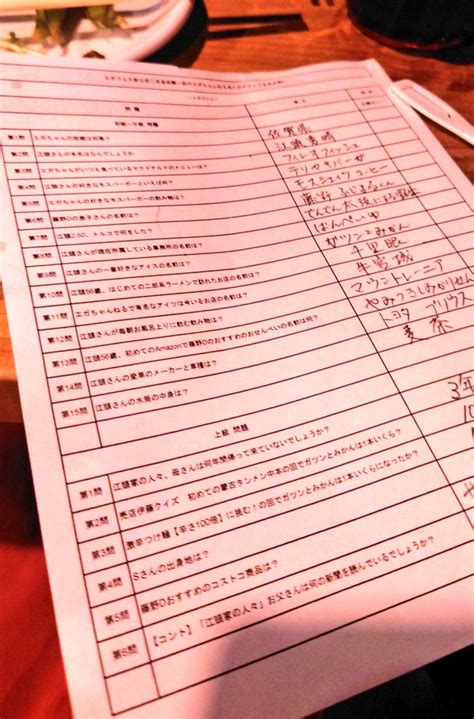 問題
初級〜中級 問題
第1問 エガちゃんの出身は何県? 佐賀県
第2問 江頭さんの本名はなんでしょうか 江頭秀晴
第3問 エガちゃんがいつも食べているマクドナルドのメニューは? フィレオフィッシュ
第4問 江頭さんの好きなモスバーガーといえば何? テリヤキバーガー
第5問 江頭さんの好きなモスバーガーの飲み物は? モスシェイクコーヒー
第6問 藤野Dの息子さんの名前は?
第7問 江頭2:50、トルコで何をした?
第8問 江頭さんが現在所属している事務所の名前は?
第9問 江頭さんの一番好きなアイスの名前は? ガツンとみかん
第10問 江頭56歳、はじめての二郎系ラーメンで訪れたお店の名前は? 千里眼
第11問 エガちゃんねるで有名なアイツは今いるお店の名前は? 牛宮城
第12問 江頭さんが毎朝お風呂上りに飲む飲み物は? マウントレーニア
第13問 江頭56歳、初めてのAmazonで藤野Dのおすすめのおせんべいの名前は何?
第14問 江頭さんの愛車のメーカーと車種は? トヨタ プリウス
第15問 江頭さんの水筒の中身は? 麦茶
上級 問題
第1問 江頭家の人々、母さんは何年間帰って来ていないでしょうか? 3年
第2問 売店伊藤クイズ 初めての蒙古タンメン中本の回でガツンとみかんは1本いくら?
第3問 激辛つけ麺【辛さ100倍】に挑む!の回でガツンとみかんは1本いくらになったか?
第4問 Sさんの出身地は?
第5問 藤野Dおすすめのコストコ商品は?
第6問 【コント】「江頭家の人々」お父さんは何の新聞を読んでいるでしょうか?